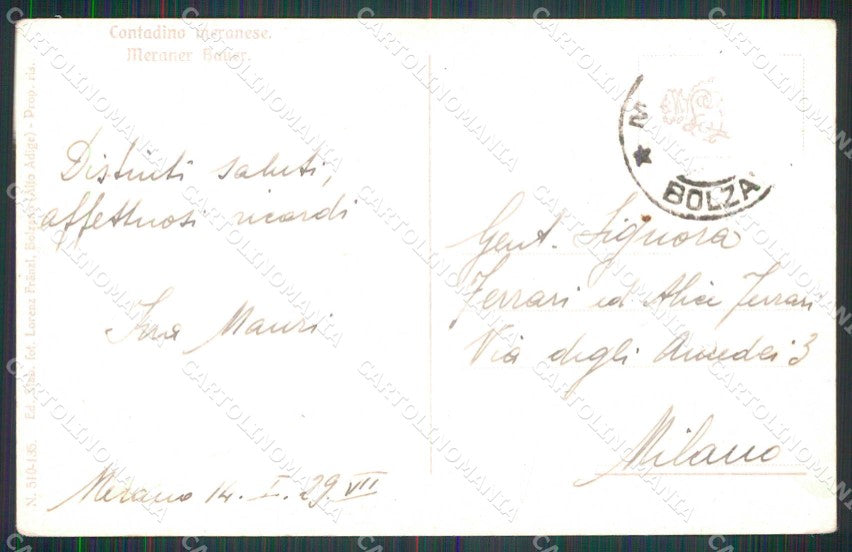 Contadino meranese.
Meraner Bauer.
Distinti saluti,
affettuosi ricordi
Mauri
Merano 14. I. 29. VII
N. 510-135. Ed. Stab. fot. Lorenz Fränzl, Bolzano (Alto Adige) - Prop. ris.
M
★ BOLZA
Gent. Signora
Ferrari ed Alice Ferrari
Via degli Amedei 3
Milano
CARTOLINOMANIA